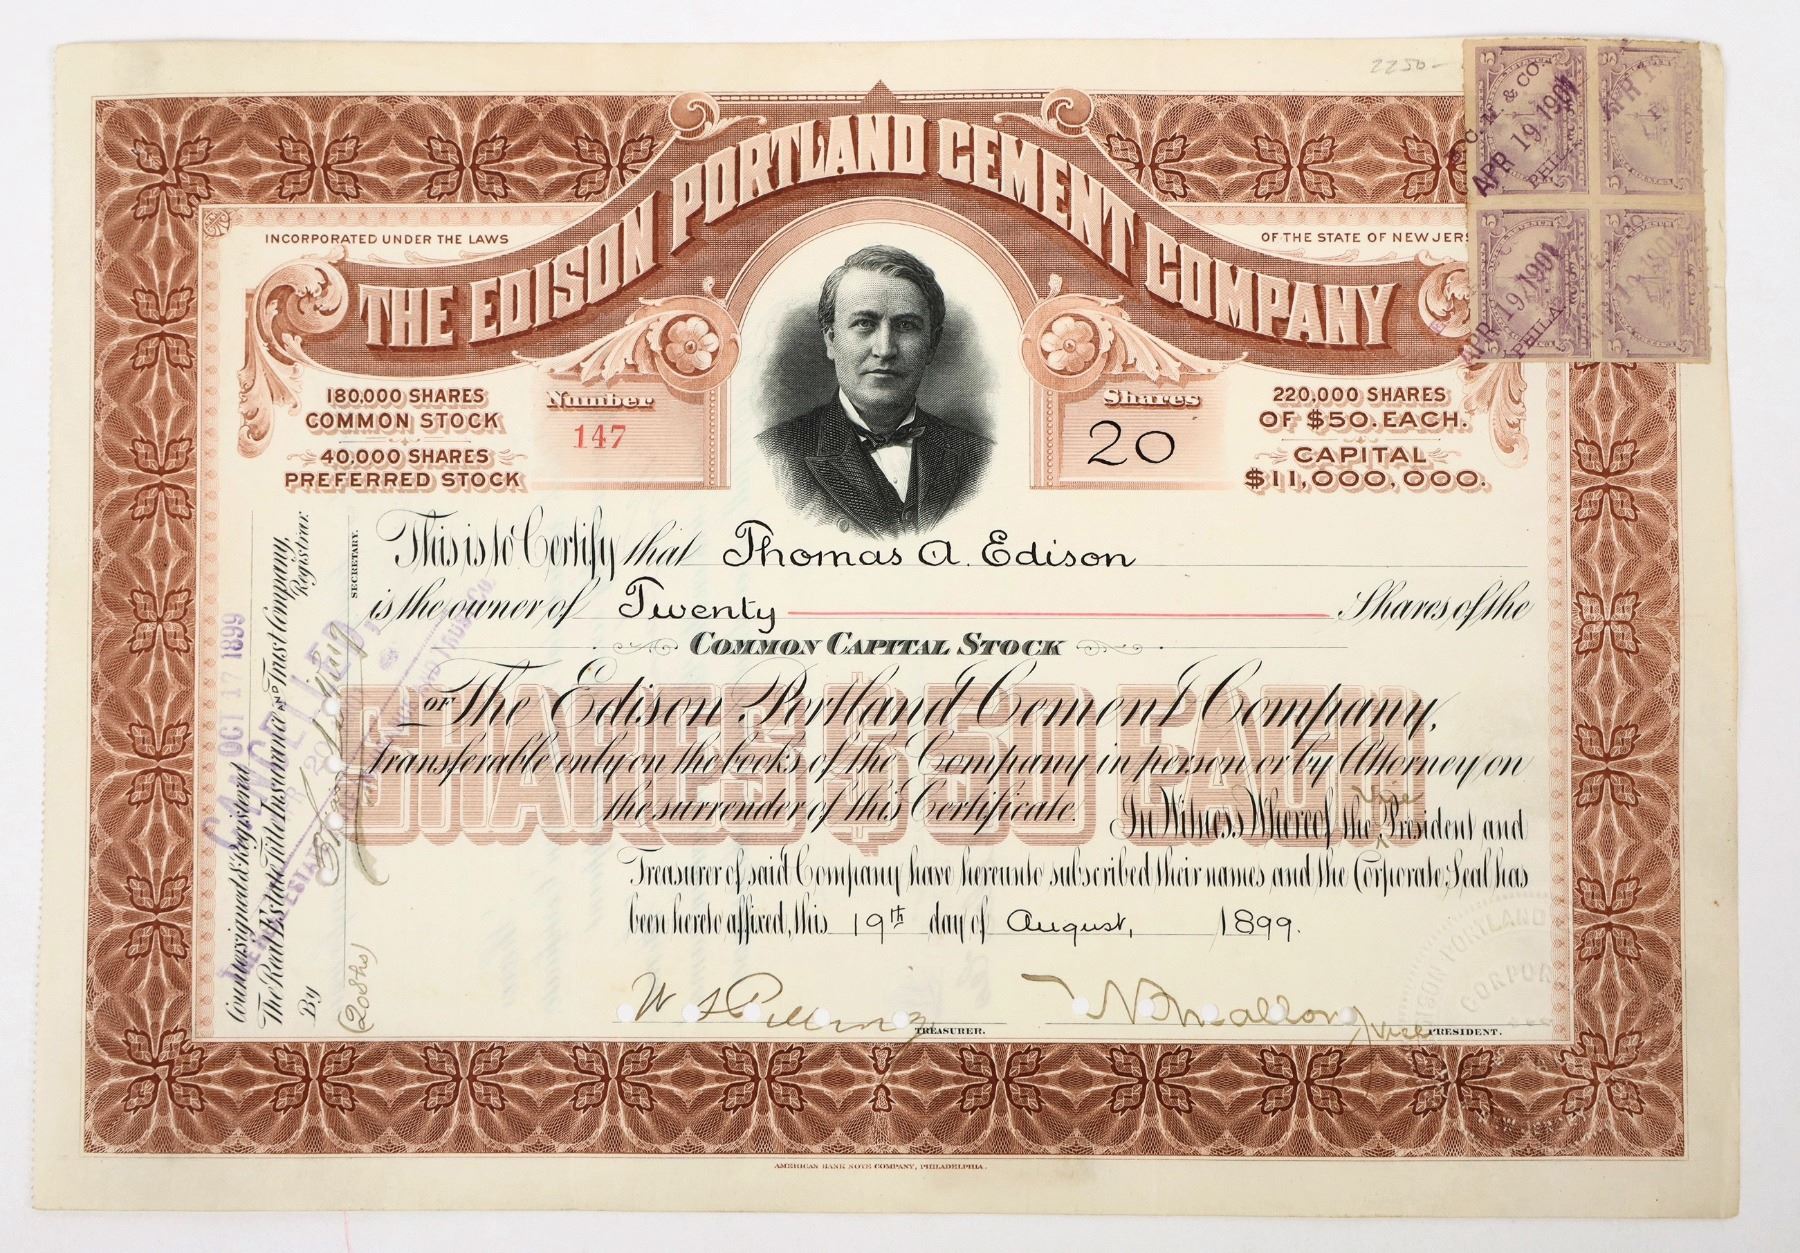 2250-
THE EDISON PORTLAND CEMENT COMPANY
INCORPORATED UNDER THE LAWS
OF THE STATE OF NEW JERS
180,000 SHARES
COMMON STOCK
40,000 SHARES
PREFERRED STOCK
Number
147
Shares
20
220,000 SHARES
OF $50. EACH.
CAPITAL
$11,000,000.
APR 19, 1901
PHILA.
APR 19, 1901
PHILA.
This is to Certify that Thomas A. Edison
is the owner of Twenty Shares of the
COMMON CAPITAL STOCK
OF The Edison Portland Cement Company,
SHARES $50 EACH
transferable only on the books of the Company in person or by Attorney on
the surrender of this Certificate. In Witness Whereof the Vice President and
Treasurer of said Company have hereunto subscribed their names and the Corporate Seal has
been hereto affixed, this 19th day of August, 1899.
TREASURER.
Vice PRESIDENT.
Countersigned & Registered OCT 17 1899
The Real Estate Title Insurance AND Trust Company,
Registrar
By
SECRETARY.
(20 shs)
CANCELLED
AMERICAN BANK NOTE COMPANY, PHILADELPHIA.